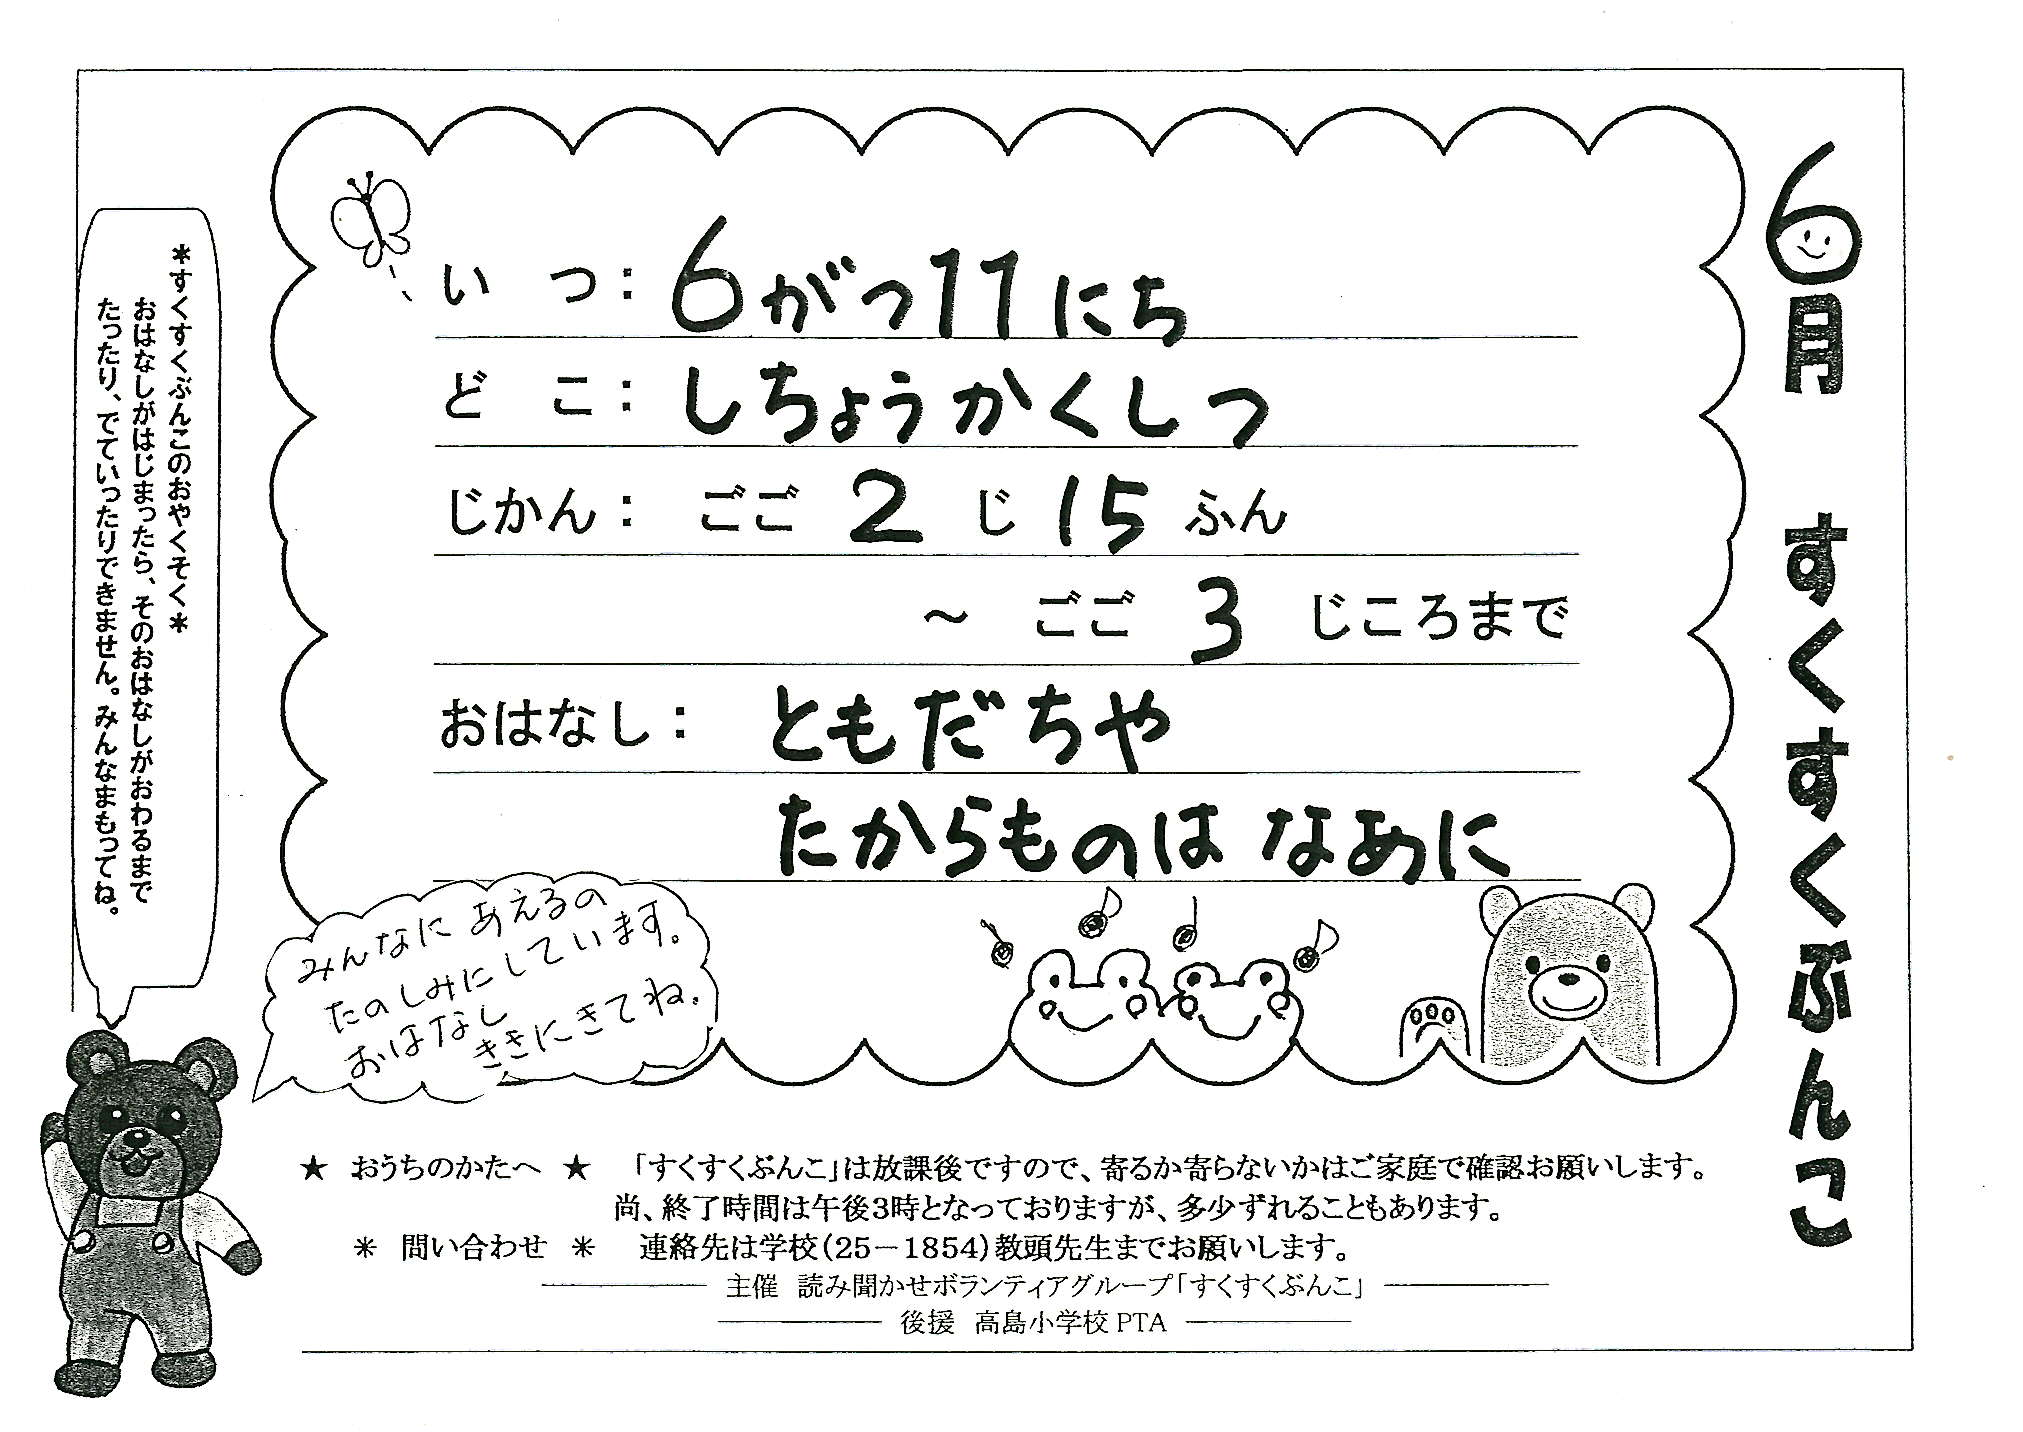 6月 すくすくぶんこ
いつ：6がつ11にち
どこ：しちょうかくしつ
じかん：ごご2じ15ふん
～ ごご3じころまで
おはなし：ともだちや
たからものは なあに
みんなに あえるの
たのしみにしています。
おはなし
ききにきてね。
＊すくすくぶんこのおやくそく＊
おはなしがはじまったら、そのおはなしがおわるまで
たったり、でていったりできません。みんなまもってね。
★ おうちのかたへ ★ 「すくすくぶんこ」は放課後ですので、寄るか寄らないかはご家庭で確認お願いします。
尚、終了時間は午後3時となっておりますが、多少ずれることもあります。
＊ 問い合わせ ＊ 連絡先は学校（25－1854）教頭先生までお願いします。
主催 読み聞かせボランティアグループ「すくすくぶんこ」
後援 高島小学校PTA